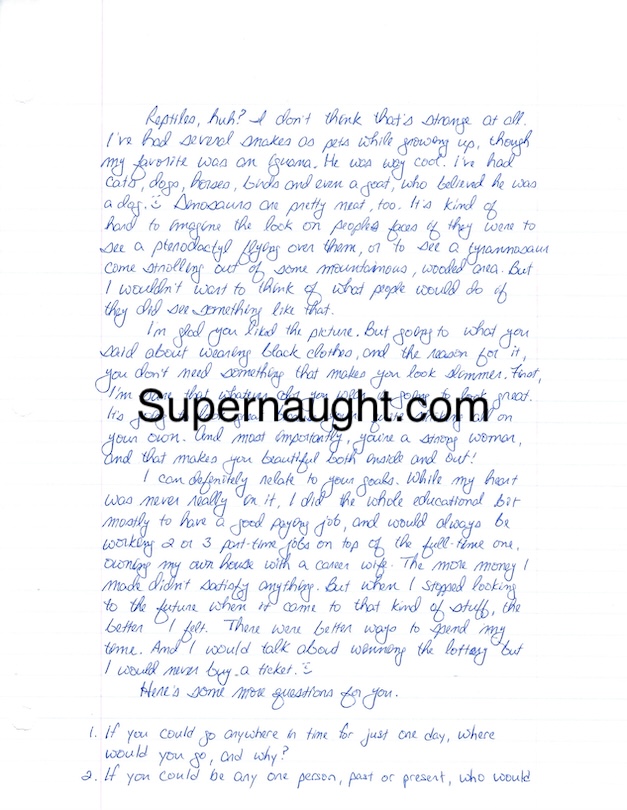 Reptiles, huh? I don't think that's strange at all.
I've had several snakes as pets while growing up, though
my favorite was an Iguana. He was way cool. I've had
cats, dogs, horses, birds and even a goat, who believed he was
a dog. Dinosaurs are pretty neat, too. It's kind of
hard to imagine the look on peoples faces if they were to
see a pterodactyl flying over them, or to see a tyrannosaur
come strolling out of some mountainous, wooded area. But
I wouldn't want to think of what people would do if
they did see something like that.
I'm glad you liked the picture. But going to what you
said about wearing black clothes, and the reason for it,
you don't need something that makes you look slimmer. First,
I'm sure that whatever you going to look great.
Supernaught.com
It's on
your own. And most importantly, you're a strong woman,
and that makes you beautiful both inside and out!
I can definitely relate to your goals. While my heart
was never really in it, I did the whole educational bit
mostly to have a good paying job, and would always be
working 2 or 3 part-time jobs on top of the full-time one,
owning my own house with a career wife. The more money I
made didn't satisfy anything. But when I stopped looking
to the future when it came to that kind of stuff, the
better I felt. There were better ways to spend my
time. And I would talk about winning the lottery but
I would never buy a ticket.
Here's some more questions for you.
1. If you could go anywhere in time for just one day, where
would you go, and why?
2. If you could be any one person, past or present, who would